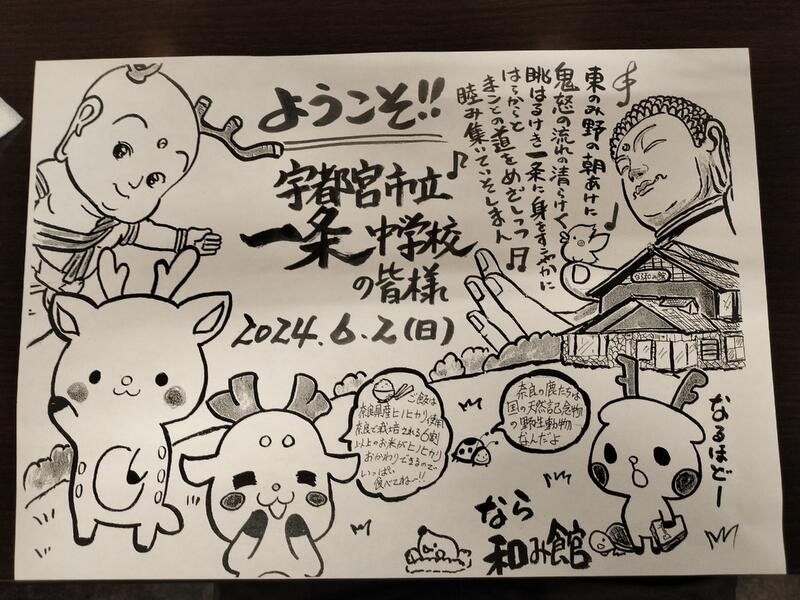 ようこそ!!
宇都宮市立
一条中学校
の皆様
2024.6.2(日)
東のみ野の朝あけに
鬼怒の流れの清らけく
眺はるけき一条に身をすこやかに
はらからと
まことの道をめざしつつ
睦み集いていそしまん
なら和み館
ご飯は
奈良県産ヒノヒカリ使用
奈良で栽培される6割
以上のお米がヒノヒカリ
おかわりできるので
いっぱい
食べてねー!!
奈良の鹿たちは
国の天然記念物
の野生動物
なんだよ
なるほどー
なら
和み館